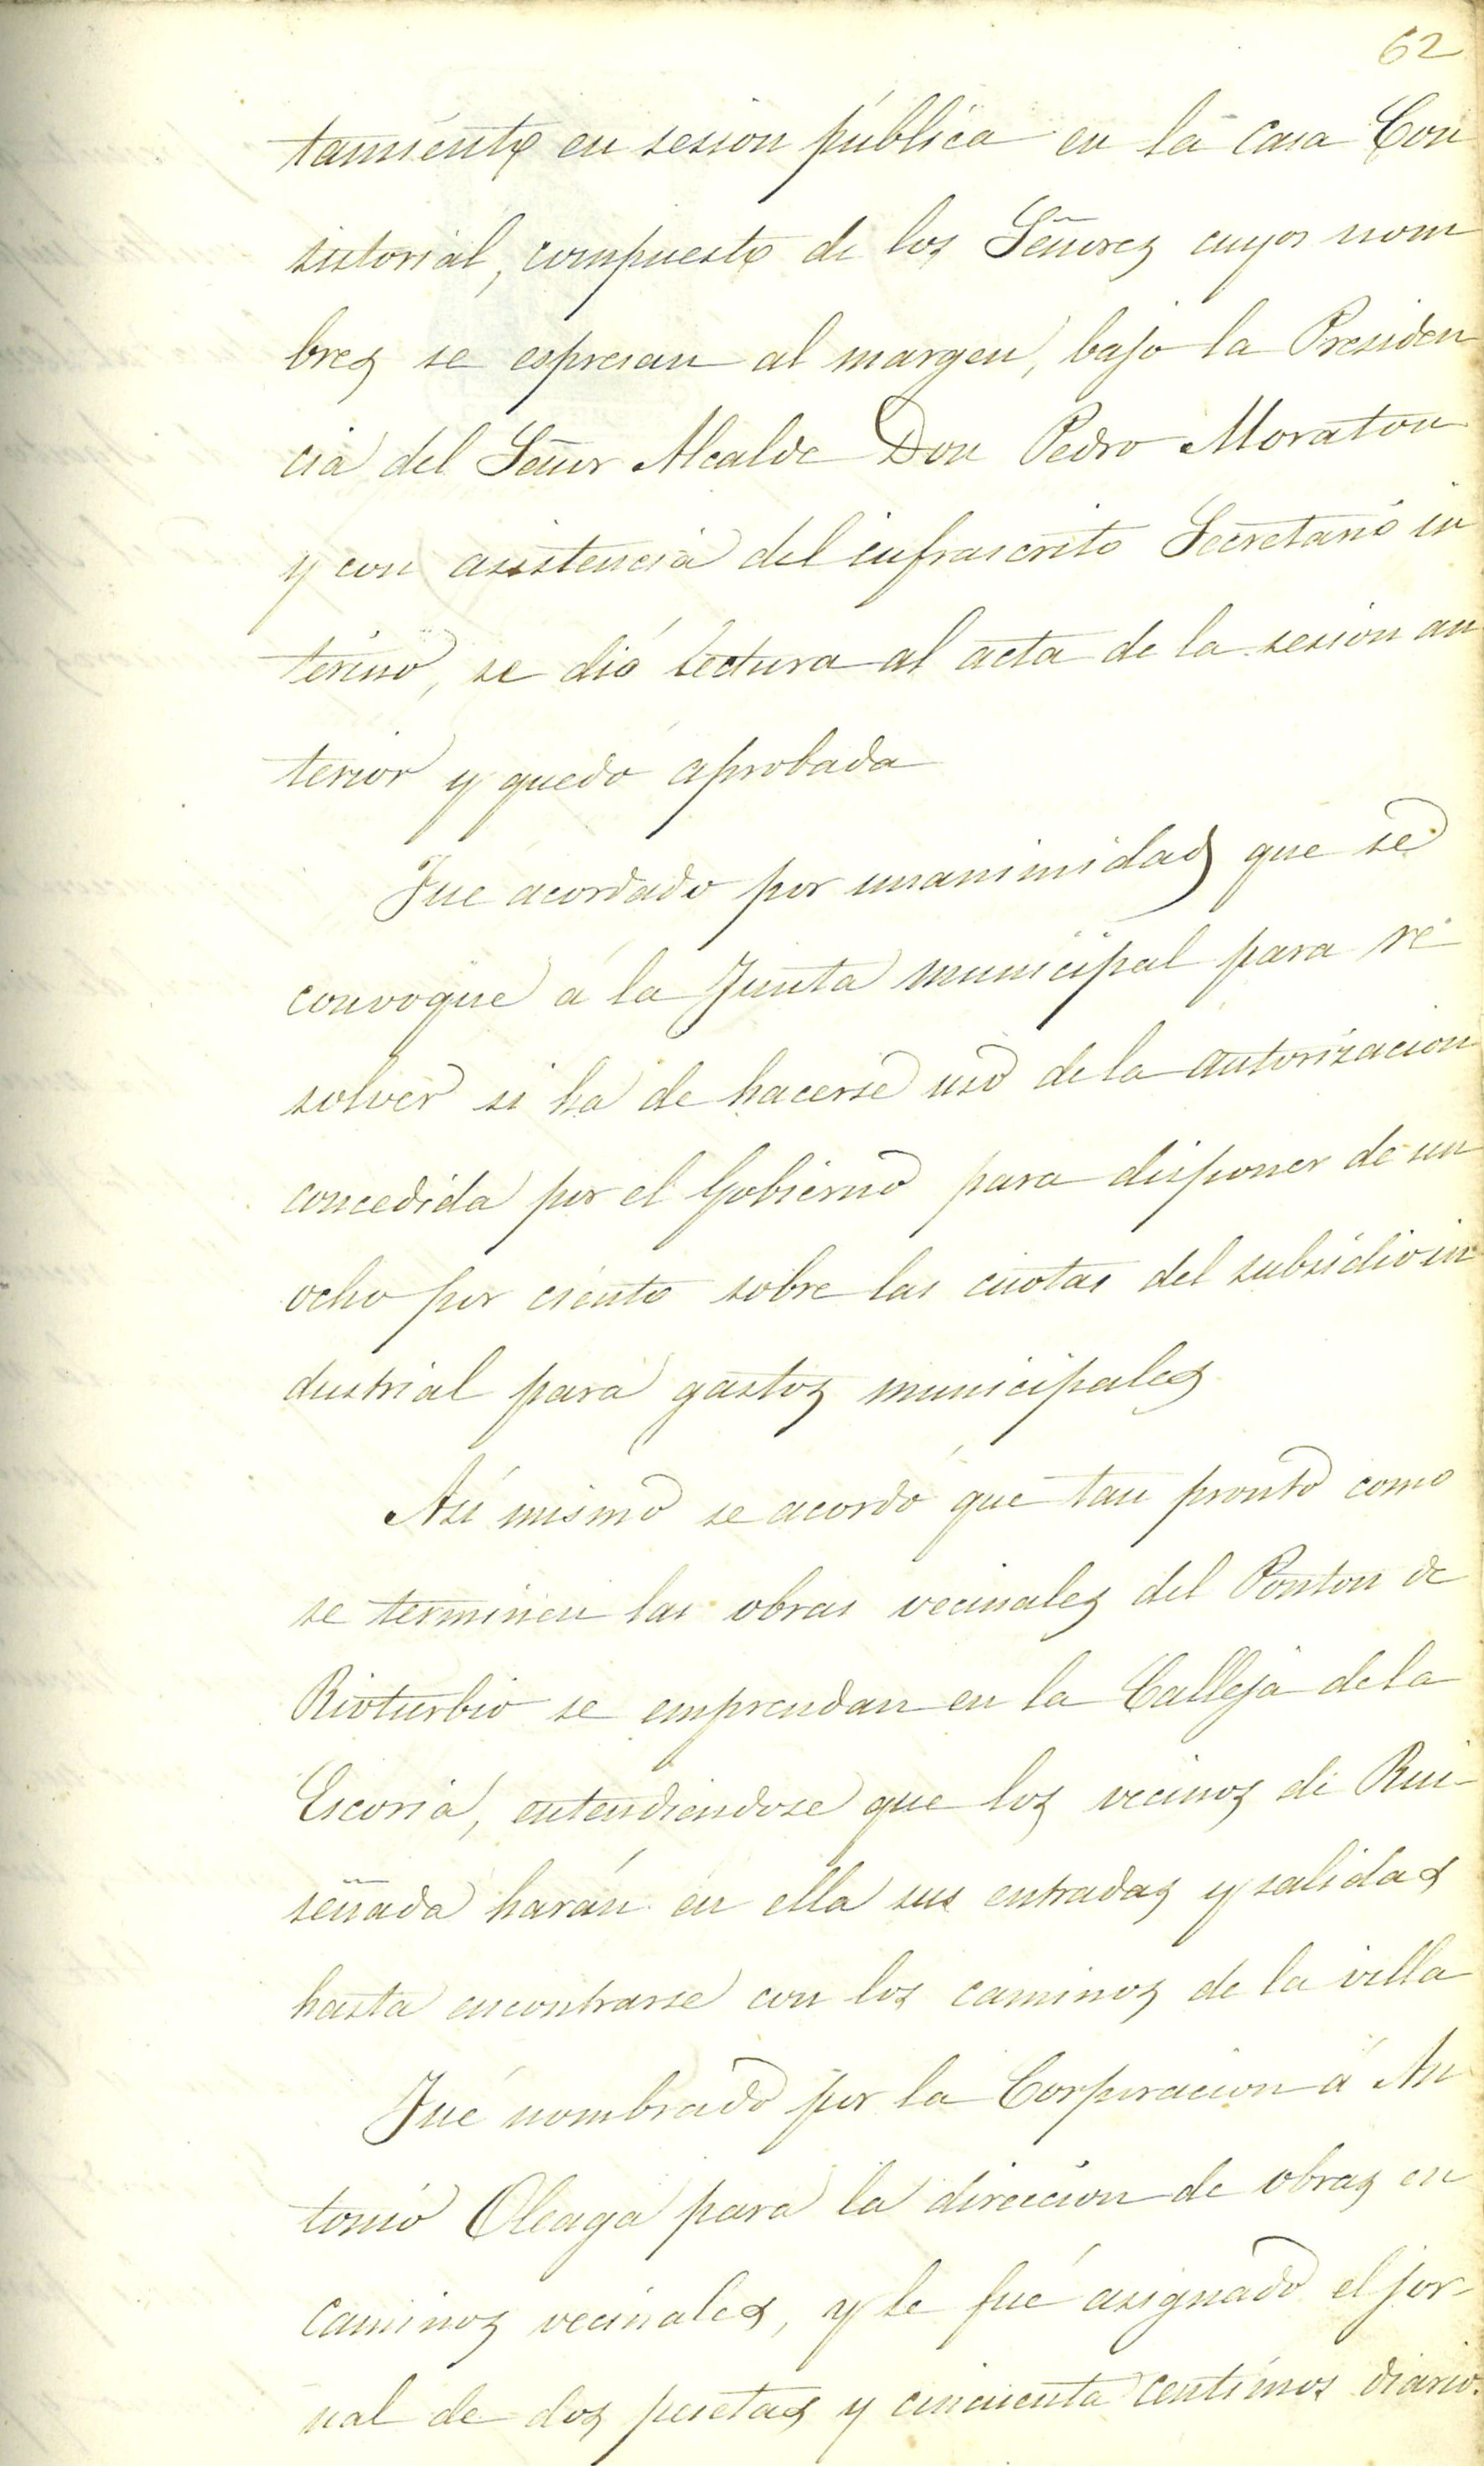 62
tamiento en sesion pública en la casa Con
sistorial, compuesto de los Señores cuyos nom
bres se espresan al margen, bajo la Presiden
cia del Señor Alcalde Don Pedro Moraton
y con asistencia del infrascrito Secretario in
terino, se dió lectura al acta de la sesion an
terior y quedó aprobada
Fué acordado por unanimidad que se
convoque á la Junta municipal para re
solver si ha de hacerse uso de la autorizacion
concedida por el Gobierno para disponer de un
ocho por ciento sobre las cuotas del subsidio in
dustrial para gastos municipales
Así mismo se acordó que tan pronto como
se terminen las obras vecinales del Ponton de
Rioturbio se emprendan en la Calleja de la
Escoria, entendiendose que los vecinos de Rui-
señada harán en ella sus entradas y salidas
hasta encontrarse con los caminos de la villa
Fué nombrado por la Corporacion á An
tonio Oleaga para la direccion de obras en
caminos vecinales, y le fué asignado el jor-
nal de dos pesetas y cincuenta centimos diario.